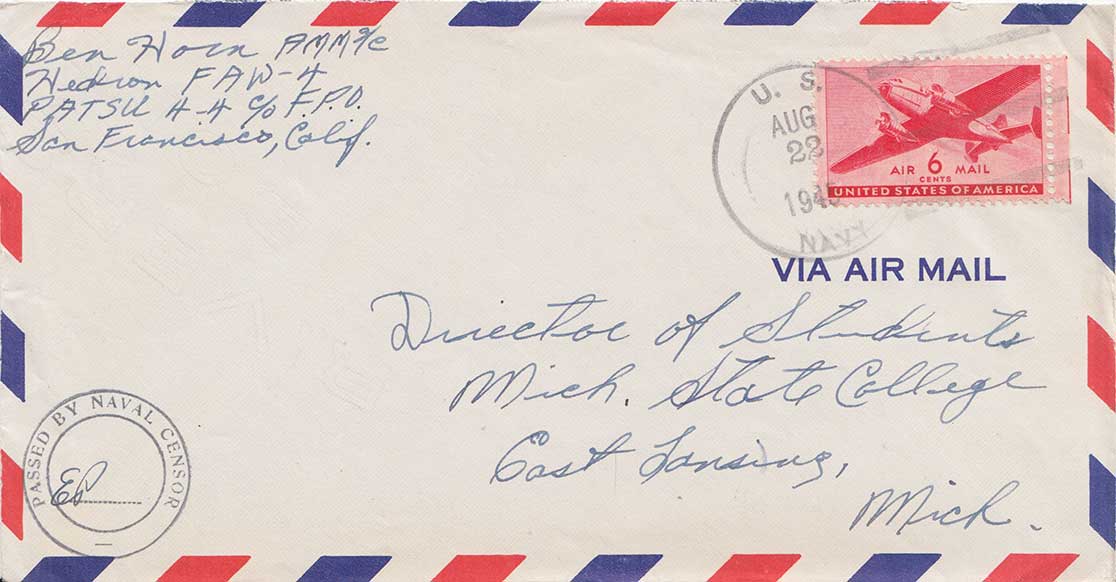 Ben Horn AMM3/c
Hedron FAW-4
PATSU 4-4 c/o F.P.O.
San Francisco, Calif.
U. S.
AUG
22
1945
NAVY
AIR 6 MAIL
CENTS
UNITED STATES OF AMERICA
VIA AIR MAIL
Director of Students
Mich. State College
East Lansing,
Mich.
PASSED BY NAVAL CENSOR